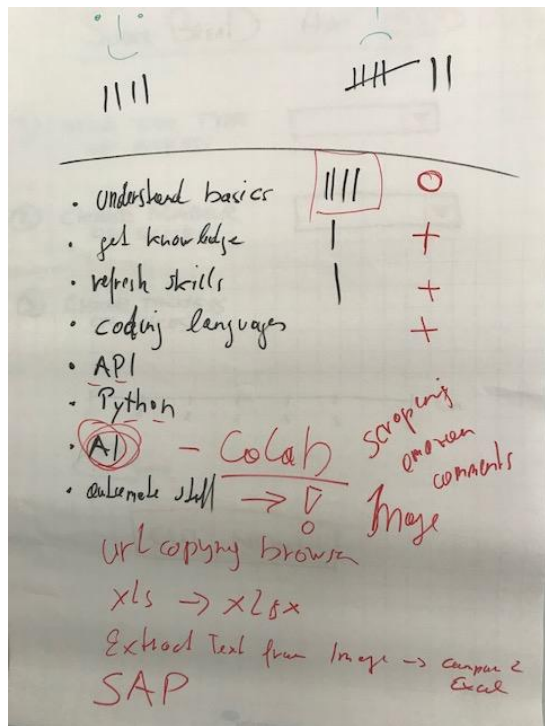 • understand basics
• get knowledge
• refresh skills
• coding languages
• API
• Python
• AI - Colab
scraping
amazon
comments
• automate stuff → !
Image
url copying browser
xls → xlsx
Extract Text from Image → compare 2
Excel
SAP